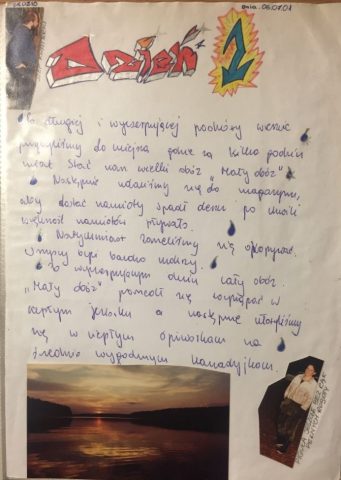 dnia. 05.07.01
Dzień 1
Po długiej i wyczerpującej podróży wreszcie
przybyliśmy do miejsca gdzie za kilka godzin
miał stać nam wielki obóz „Mały obóz”
Następnie udaliśmy się do magazynu,
aby dostać namioty spadł deszcz po chwili
większość namiotów pływało.
Natychmiast zaczęliśmy się okopywać.
Wszyscy byli bardzo mokrzy.
Po wyczerpującym dniu cały obóz
„Mały obóz” pomógł się wykąpać w
ciepłym jeziorku a następnie utonęliśmy
się w ciepłym śpiworkach na
średnio wygodnym kanadyjkom.